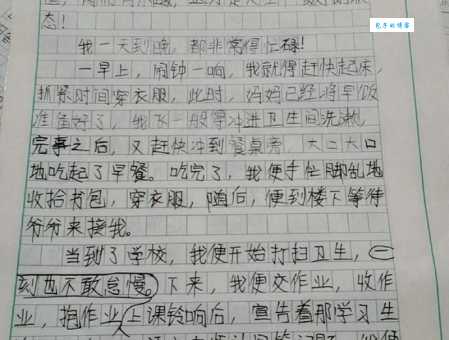 包子的博客
态!
我一天到晚,都非常得忙碌!
一早上,闹钟一响,我就得赶快起床,
抓紧时间穿衣服,此时,妈妈已经将早饭
准备好了,我飞一般得冲进卫生间洗漱,
完事之后,又赶快冲到餐桌旁,大口大口
地吃起了早餐。吃完了,我便手忙脚乱地
收拾书包,穿衣服,随后,便到楼下等待
爷爷来接我。
当到了学校,我便开始打扫卫生,一
刻也不敢怠慢。下来,我便交作业,收作
业,抱作业上课铃响后,宣告着那学习生